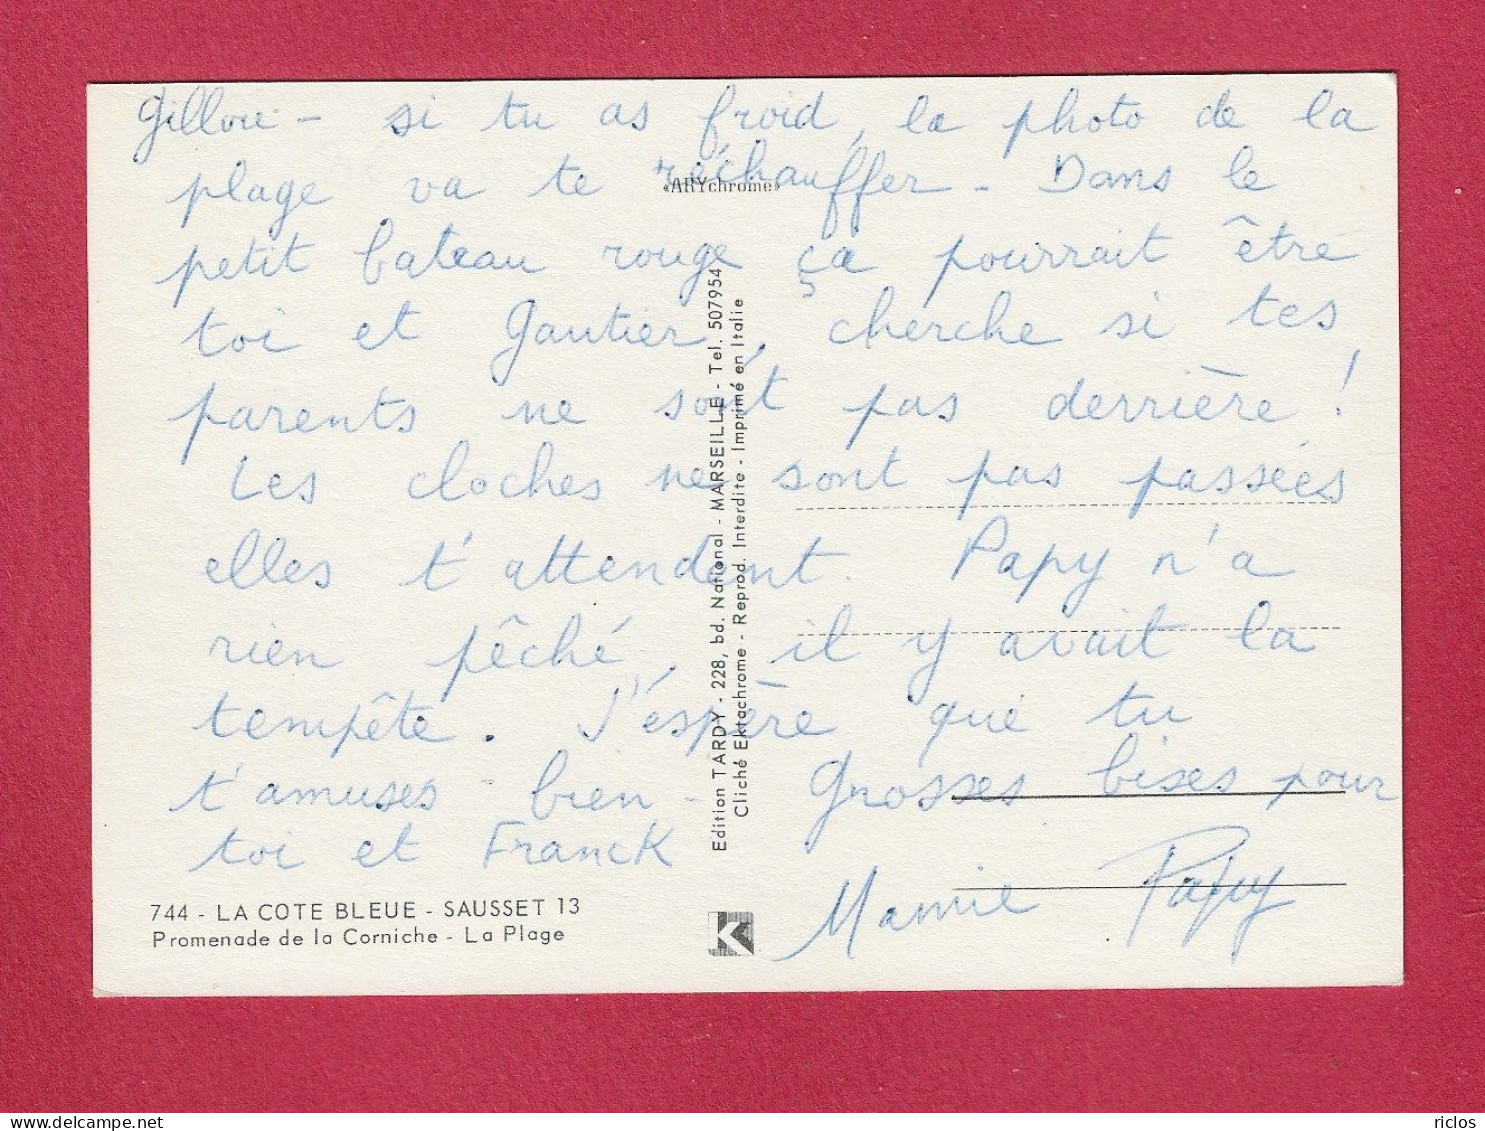 Gillou - si tu as froid, la photo de la
plage va te réchauffer - Dans le
«ARYchrome»
petit bateau rouge ça pourrait être
toi et Gautier, cherche si tes
parents ne sont pas derrière !
Les cloches ne sont pas passées
elles t'attendent. Papy n'a
rien pêché, il y avait la
tempête. J'espère que tu
t'amuses bien - Grosses bises pour
toi et Franck
Mamie Papy
744 - LA COTE BLEUE - SAUSSET 13
Promenade de la Corniche - La Plage
Edition TARDY - 228, bd. National - MARSEILLE - Tel. 507954
Cliché Ektachrome - Reprod. Interdite - Imprimé en Italie
K
delcampe.net
riclos